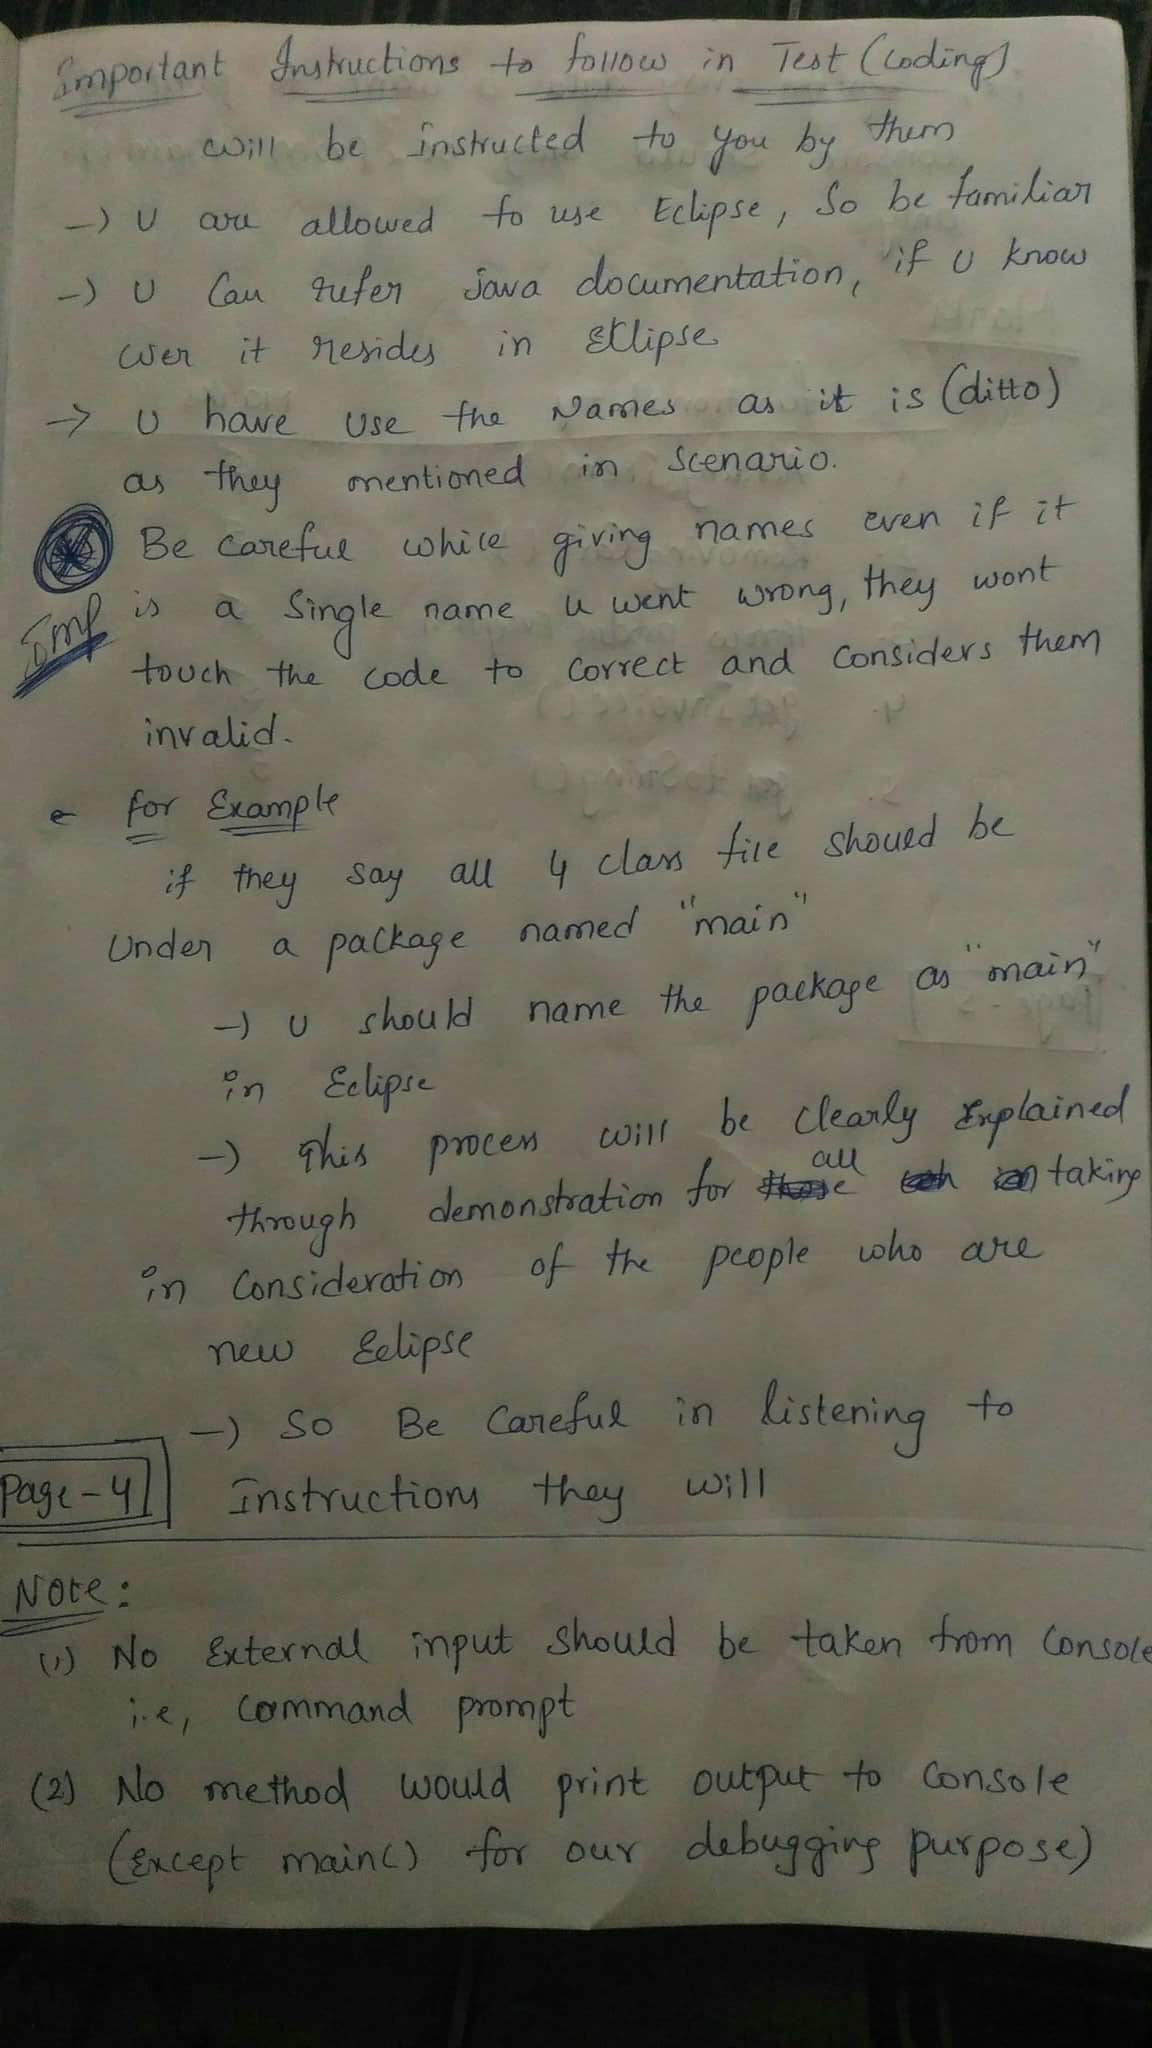 Important Instructions to follow in Test (Coding)
will be instructed to you by them
-) U are allowed to use Eclipse, So be familiar
-) U Can refer java documentation, if u know
wer it resides in Eklipse
-> U have use the Names as it is (ditto)
as they mentioned in Scenario.
Be careful while giving names even if it
Imp is a Single name u went wrong, they wont
touch the code to correct and considers them
invalid.
for Example
if they say all 4 class file should be
Under a package named "main"
-) U should name the package as "main"
in Eclipse
-) This process will be clearly Explained
through demonstration for all taking
in Consideration of the people who are
new Eclipse
-) So Be Careful in listening to
Page-4 Instructions they will
Note:
(1) No External input should be taken from Console
i.e, Command prompt
(2) No method would print output to Console
(Except main() for our debugging purpose)